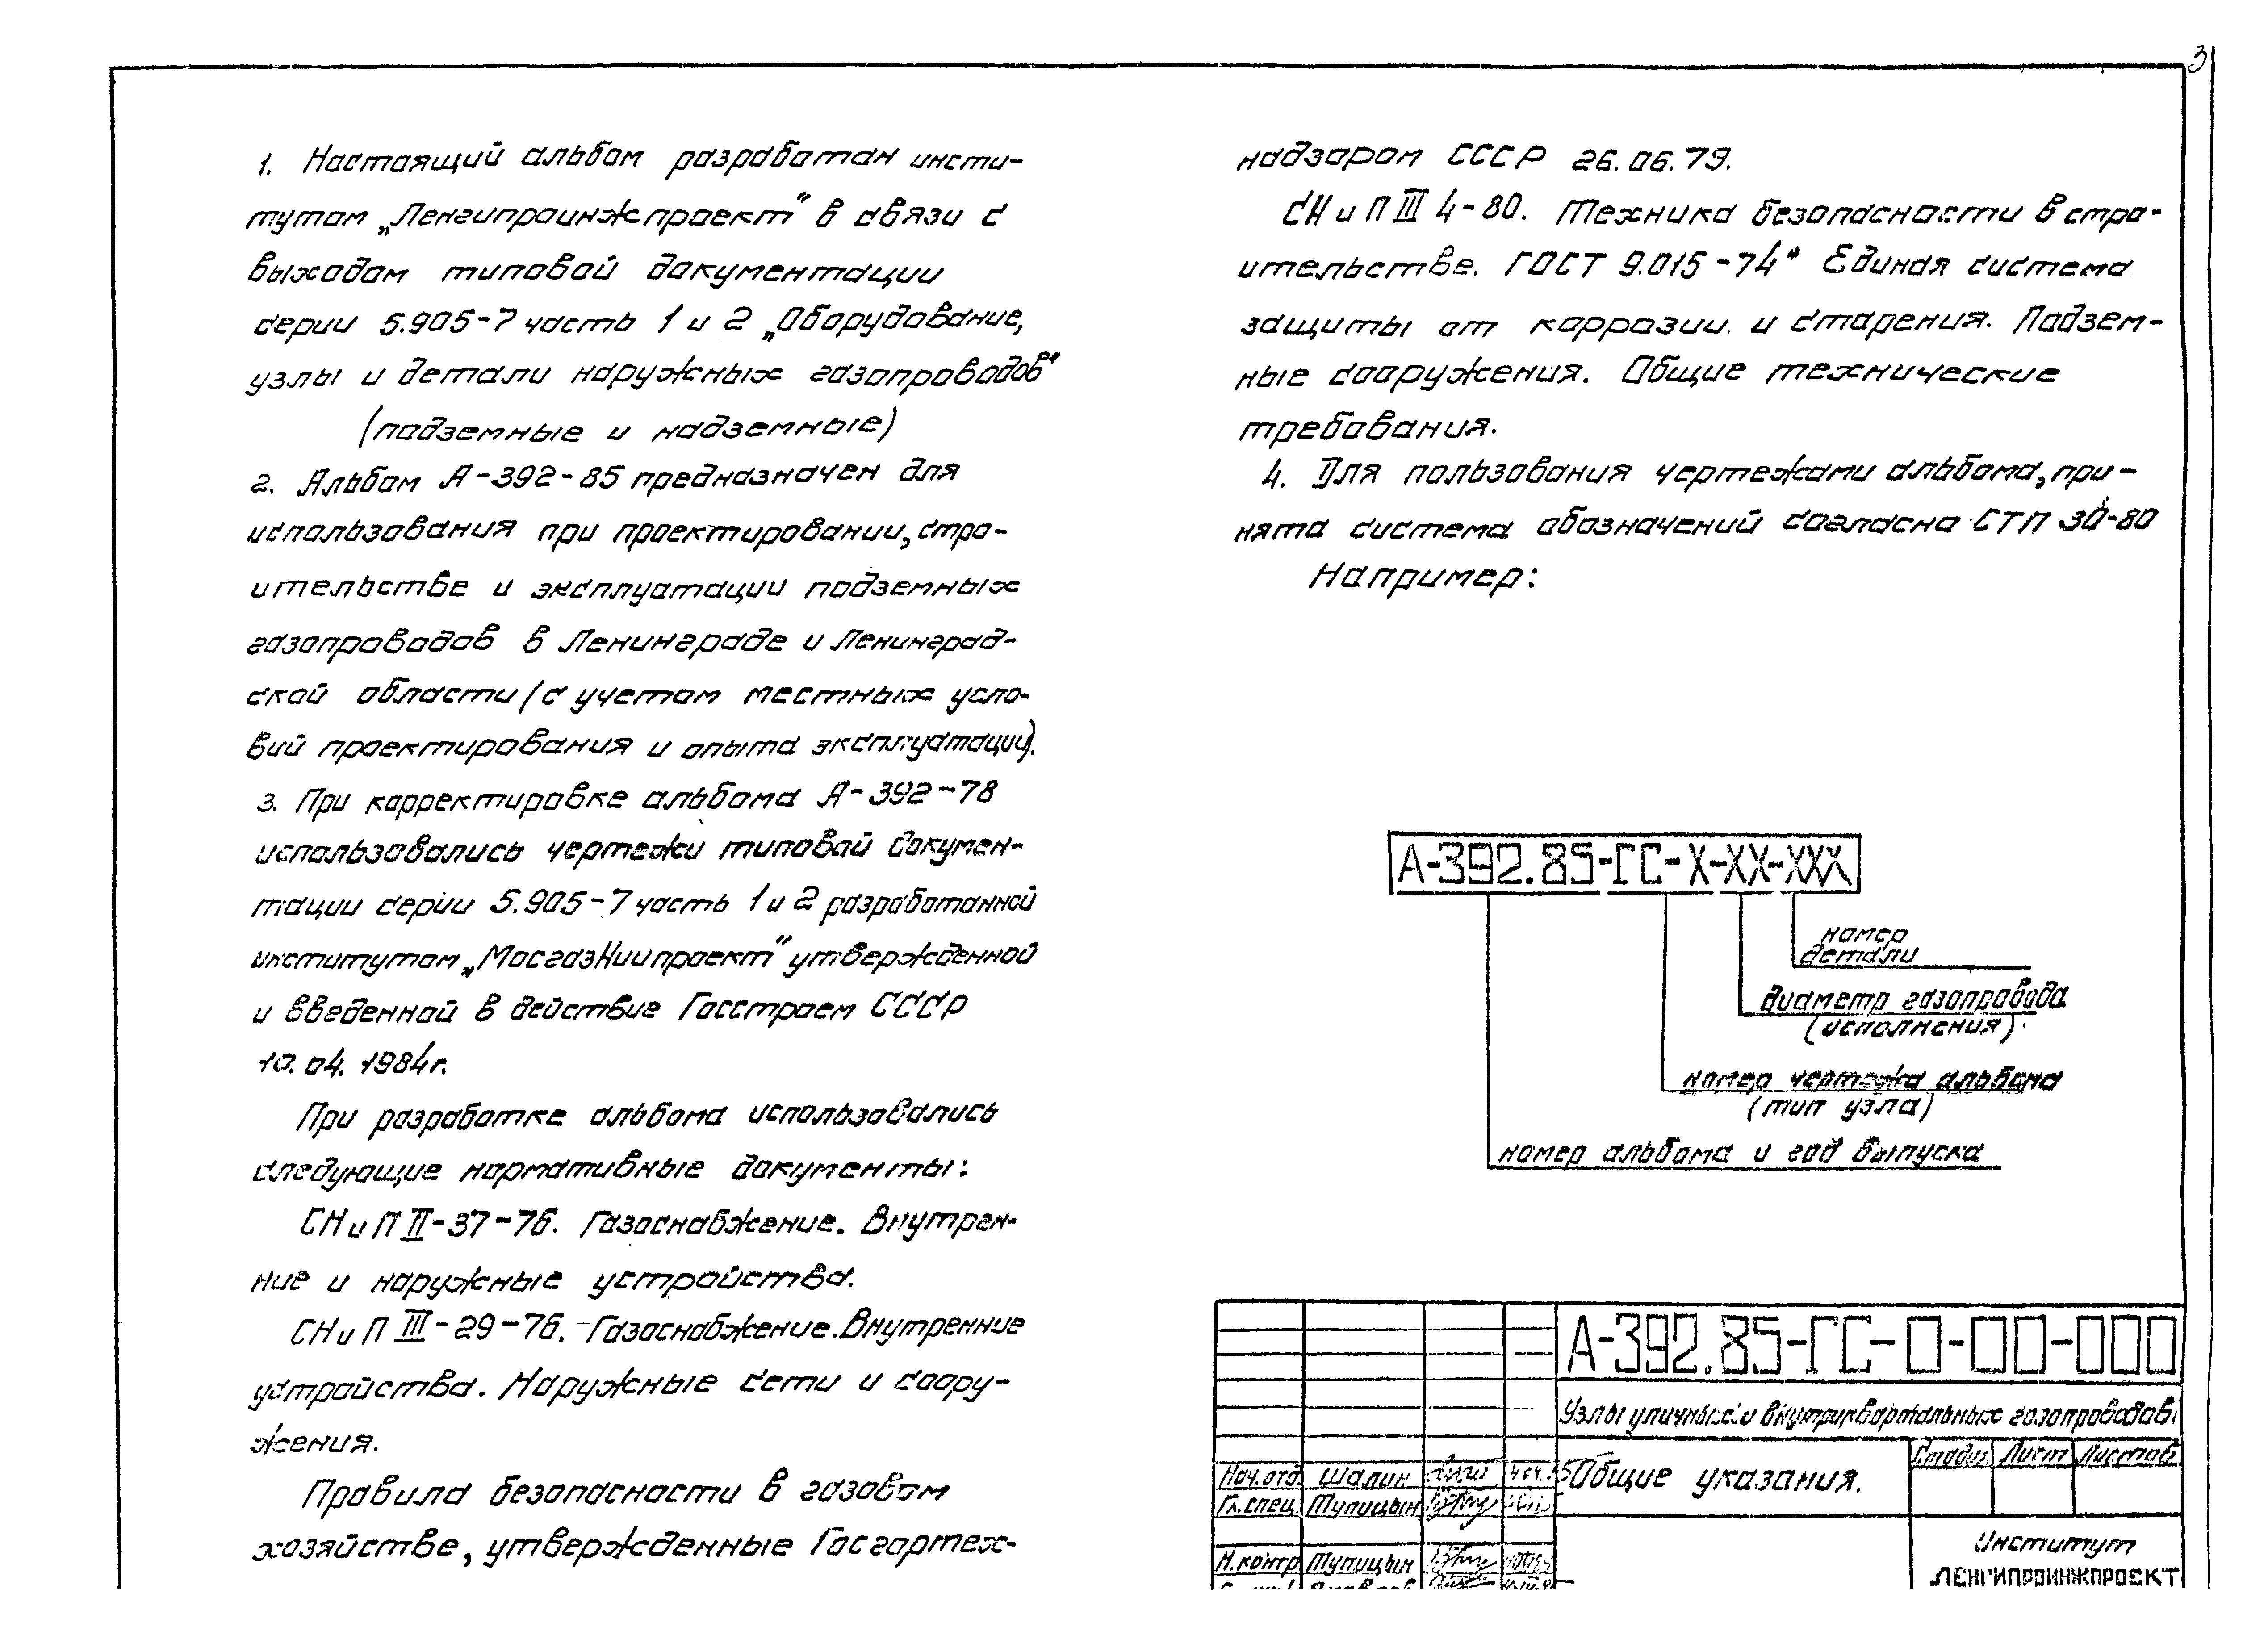 3
1. Настоящий альбом разработан инсти-
тутом „Ленгипроинжпроект" в связи с
выходом типовой документации
серии 5.905-7 часть 1 и 2 „Оборудование,
узлы и детали наружных газопроводов"
(подземные и надземные)
2. Альбом А-392-85 предназначен для
использования при проектировании, стро-
ительстве и эксплуатации подземных
газопроводов в Ленинграде и Ленинград-
ской области /с учетом местных усло-
вий проектирования и опыта эксплуатации).
3. При корректировке альбома А-392-78
использовались чертежи типовой докумен-
тации серии 5.905-7 часть 1 и 2 разработанной
институтом „МосгазНиипроект" утвержденной
и введенной в действие Госстроем СССР
10.04.1984г.
При разработке альбома использовались
следующие нормативные документы:
СНиП II-37-76. Газоснабжение. Внутрен-
ние и наружные устройства.
СНиП III-29-76. Газоснабжение. Внутренние
устройства. Наружные сети и соору-
жения.
Правила безопасности в газовом
хозяйстве, утвержденные Госгортех-
надзором СССР 26.06.79.
СНиП III 4-80. Техника безопасности в стро-
ительстве. ГОСТ 9.015-74* Единая система
защиты от коррозии и старения. Подзем-
ные сооружения. Общие технические
требования.
4. Для пользования чертежами альбома, при-
нята система обозначений согласно СТП 30-80
Например:
А-392.85-ГС-Х-ХХ-ХХХ
номер
детали
диаметр газопровода
(исполнения)
номер чертежа альбома
(тип узла)
номер альбома и год выпуска
А-392.85-ГС-0-00-000
Узлы уличных и внутриквартальных газопроводов
Общие указания.
Стадия Лист Листов
Нач.отд. Шалин
Гл.спец. Тупицын
Н.контр Тупицын
Институт
ЛЕНГИПРОИНЖПРОЕКТ